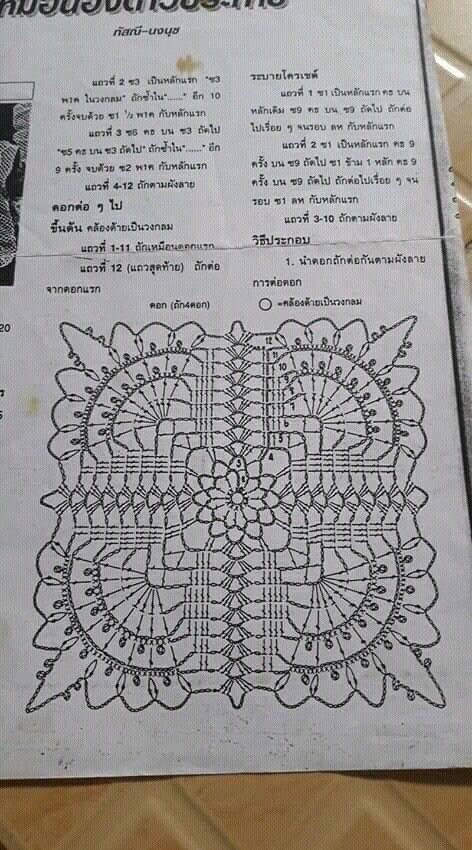 ทัศณี-นงนุช
แถวที่ 2 ซ3 เป็นหลักแรก "ซ3
พ1ค ในวงกลม" ถักซ้ำใน"......" อีก 10
ครั้งจบด้วย ซ1 ½ พ1ค กับหลักแรก
แถวที่ 3 ซ6 คธ บน ซ3 ถัดไป
"ซ5 คธ บน ซ3 ถัดไป" ถักซ้ำใน"......" อีก
9 ครั้งจบด้วย ซ2 พ1ค กับหลักแรก
แถวที่ 4-12 ถักตามผังลาย
ดอกต่อ ๆ ไป
ขึ้นต้น คล้องด้ายเป็นวงกลม
แถวที่ 1-11 ถักเหมือนดอกแรก
แถวที่ 12 (แถวสุดท้าย) ถักต่อ
จากดอกแรก
ระบายโครเชต์
แถวที่ 1 ซ1 เป็นหลักแรก คธ บน
หลักเดิม ซ9 คธ บน ซ9 ถัดไป ถักต่อ
ไปเรื่อย ๆ จนรอบ ลห กับหลักแรก
แถวที่ 2 ซ1 เป็นหลักแรก คธ 9
ครั้ง บน ซ9 ถัดไป ซ1 ข้าม 1 หลัก คธ 9
ครั้ง บน ซ9 ถัดไป ถักต่อไปเรื่อย ๆ จน
รอบ ซ1 ลห กับหลักแรก
แถวที่ 3-10 ถักตามผังลาย
วิธีประกอบ
1. นำดอกถักต่อกันตามผังลาย
การต่อดอก
ดอก (ถัก4ดอก)
=คล้องด้ายเป็นวงกลม
20
5
12
11
10
7
6
5
4
3